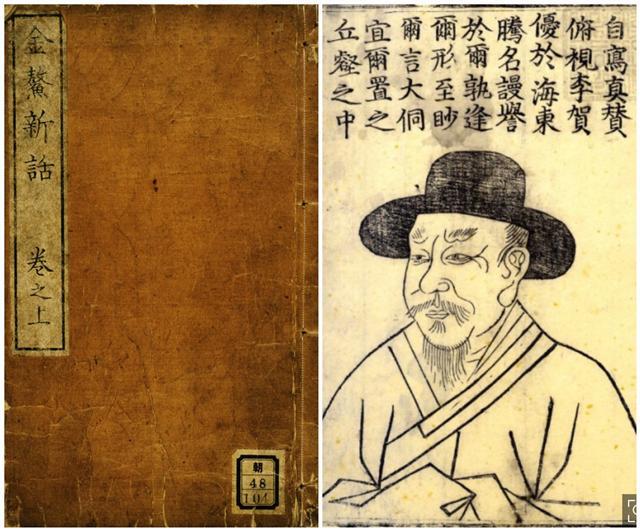 金鰲新話 卷之上
朝
48
101
自寫真贊
俯視李賀
優於海東
騰名謾譽
於爾孰逢
爾形至眇
爾言大侗
宜爾置之
丘壑之中